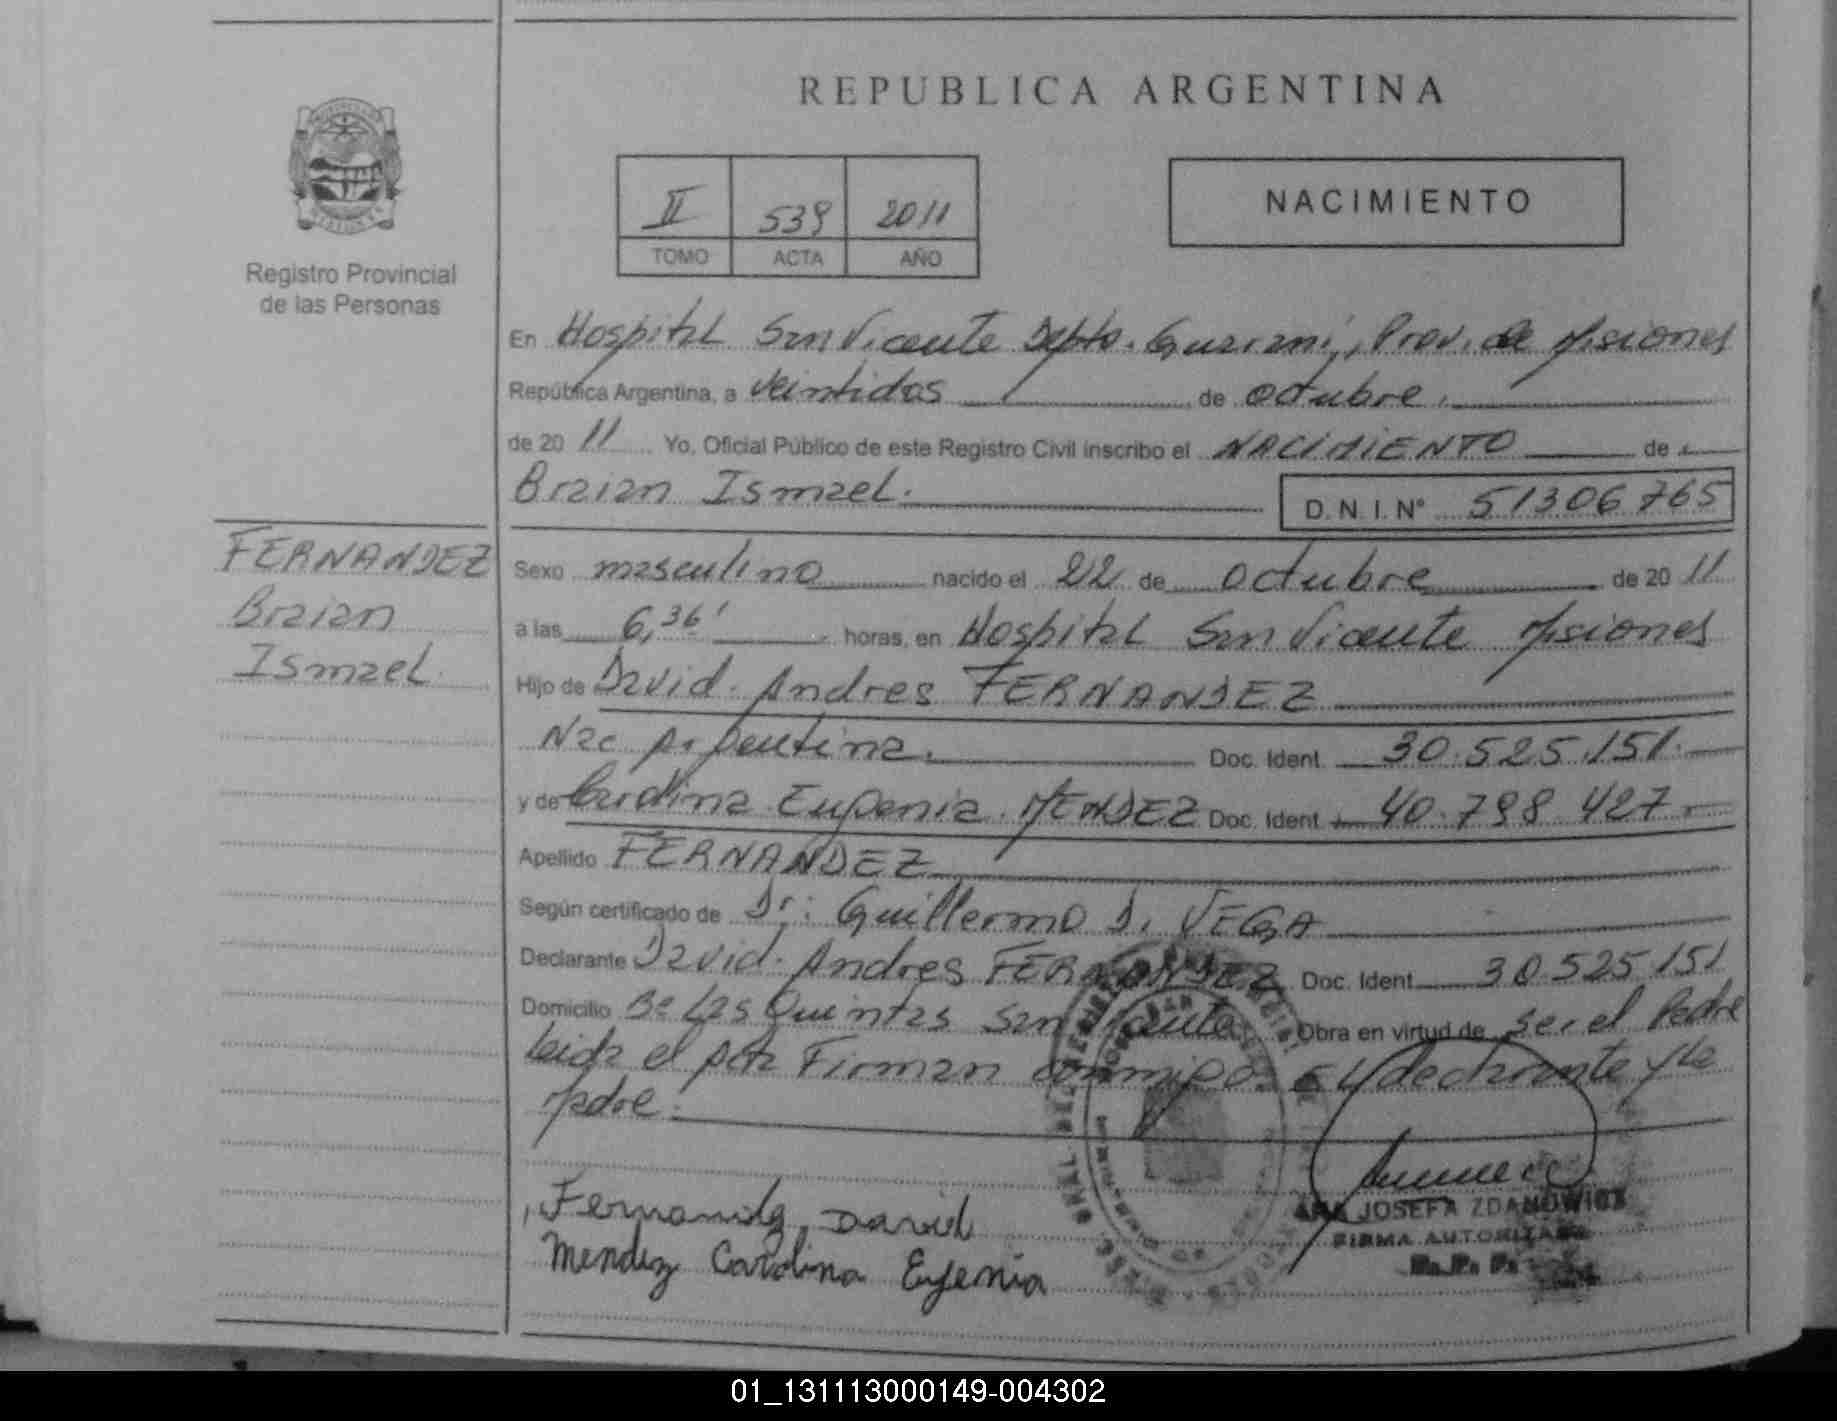 REPUBLICA ARGENTINA
II 539 2011
TOMO ACTA AÑO
NACIMIENTO
Registro Provincial
de las Personas
En Hospital San Vicente Depto. Guarani, Prov. de Misiones
República Argentina, a veintidos de octubre.
de 20 11 Yo, Oficial Público de este Registro Civil inscribo el NACIMIENTO de
Braian Ismael.
D.N.I. Nº 51306765
FERNANDEZ
Braian
Ismael.
Sexo masculino nacido el 22 de octubre de 20 11
a las 6,36' horas, en Hospital San Vicente Misiones
Hijo de David Andres FERNANDEZ
Nac Argentina. Doc. Ident. 30.525.151.
y de Carolina Eugenia MENDEZ Doc. Ident. 40.798.427.
Apellido FERNANDEZ
Según certificado de Dr: Guillermo D. VEGA
Declarante David Andres FERNANDEZ Doc. Ident. 30.525.151
Domicilio Bº Las Quintas San Vicente Obra en virtud de ser el Padre
leida el acta Firman conmigo el declarante y la
Madre.
Fernandez, David
Mendez Carolina Eugenia
ANA JOSEFA ZDANOWICZ
FIRMA AUTORIZADA
R. P. P.
01_131113000149-004302